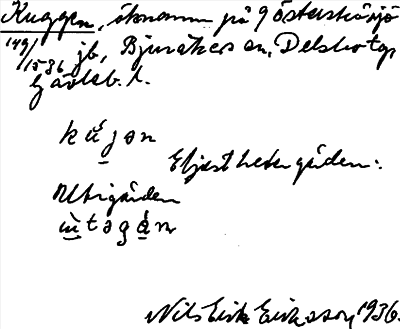 Kuggen, öknamn på 9 Österskärsjö
149/1536 jb, Bjuråkers sn, Delsbo tg
Gävleb. l.
Eljest heter gården:
Utigården
Nils Erik Eriksson, 1936.